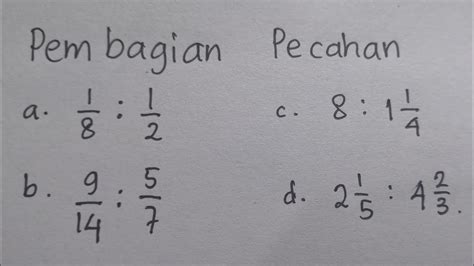 Pembagian Pecahan
a. 1/8 : 1/2
c. 8 : 1 1/4
b. 9/14 : 5/7
d. 2 1/5 : 4 2/3.